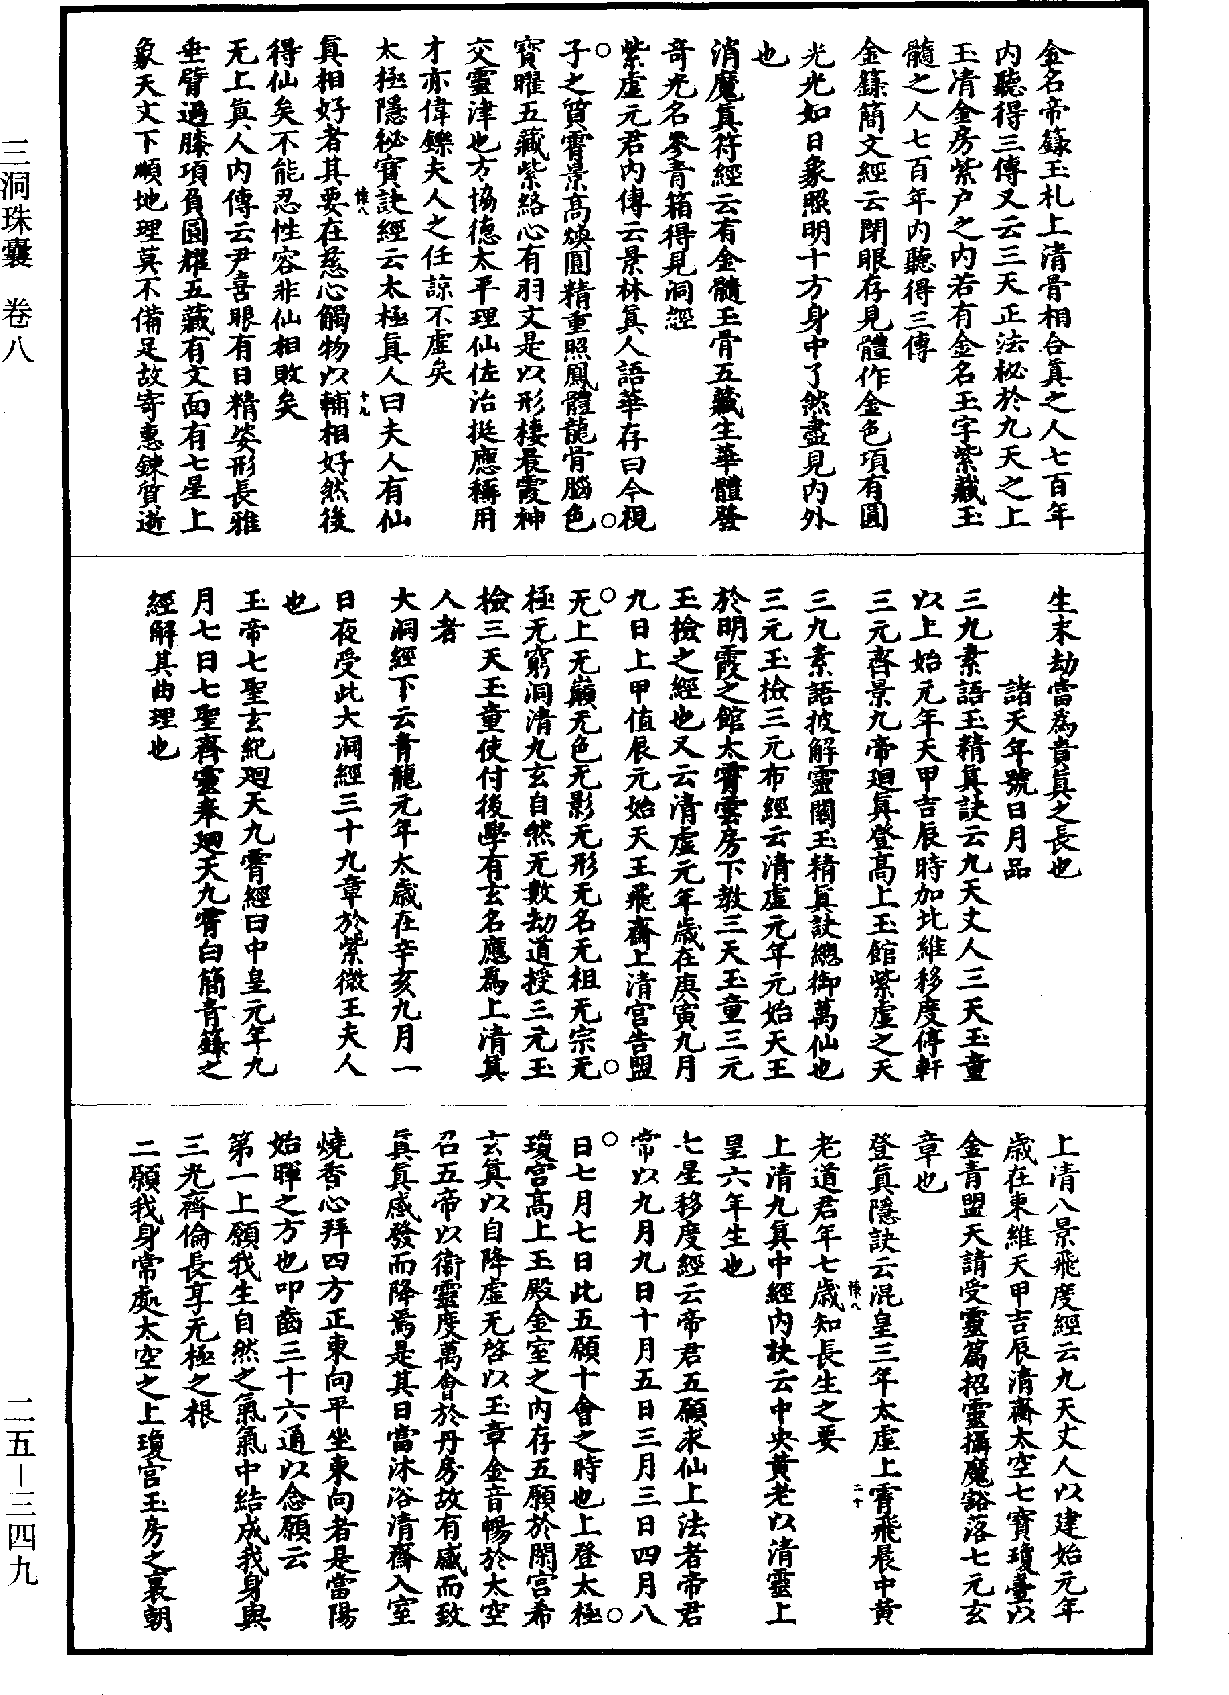 金名帝籙玉札上清骨相合真之人七百年
內聽得三傳又云三天正法秘於九天之上
玉清金房紫户之內若有金名玉字紫藏玉
髓之人七百年內聽得三傳
金籙簡文經云閉眼存見體作金色項有圓
光光如日象照明十方身中了然盡見內外
也
消魔真符經云有金髓玉骨五藏生華體發
奇光名參青箱得見洞經
紫虛元君內傳云景林真人語華存曰今視
子之質霄景高煥圓精重照鳳體龍骨腦色
寶曜五藏紫絡心有羽文是以形棲晨霞神
交靈津也方協德太平理仙佐治挺應稱用
才亦偉鑠夫人之任諒不虛矣
太極隱祕寶訣經云太極真人曰夫人有仙
悚八
十九
真相好者其要在慈心觸物以輔相好然後
得仙矣不能忍性容非仙相敗矣
无上真人內傳云尹喜眼有日精姿形長雅
垂臂過膝項負圓耀五藏有文面有七星上
象天文下順地理莫不備足故寄惠鍊質逝
生末劫當為貴真之長也
諸天年號日月品
三九素語玉精真訣云九天丈人三天玉童
以上始元年天甲吉辰時加比維移度停軒
三元齊景九帝迴真登高上玉館紫虛之天
三九素語披解靈關玉精真訣總御萬仙也
三元玉檢三元布經云清虛元年元始天王
於明霞之館太霄雲房下教三天玉童三元
玉檢之經也又云清虛元年歲在庚寅九月
九日上甲值辰元始天王飛齋上清宮告盟
无上无巔无色无影无形无名无祖无宗无
極无窮洞清九玄自然无數劫道授三元玉
檢三天玉童使付後學有玄名應為上清真
人者
大洞經下云青龍元年太歲在辛亥九月一
日夜受此大洞經三十九章於紫微王夫人
也
玉帝七聖玄紀迴天九霄經曰中皇元年九
月七日七聖齊靈奉迴天九霄白簡青籙之
經解其曲理也
上清八景飛度經云九天丈人以建始元年
歲在東維天甲吉辰清齋太空七寶瓊臺以
金青盟天請受靈篇招靈攝魔豁落七元玄
章也
登真隱訣云混皇三年太虛上霄飛晨中黃
悚八
二十
老道君年七歲知長生之要
上清九真中經內訣云中央黃老以清靈上
皇六年生也
七星移度經云帝君五願求仙上法者帝君
常以九月九日十月五日三月三日四月八
日七月七日此五願十會之時也上登太極
瓊宮高上玉殿金室之內存五願於閑宮希
玄真以自降虛无啓以玉章金音暢於太空
召五帝以衛靈度萬會於丹房故有感而致
真真感發而降焉是其日當沐浴清齋入室
燒香心拜四方正東向平坐東向者是當陽
始暉之方也叩齒三十六通以念願云
第一上願我生自然之氣氣中結成我身與
三光齊倫長享无極之根
二願我身常處太空之上瓊宮玉房之裏朝
三洞珠囊　卷八
二五－三四九